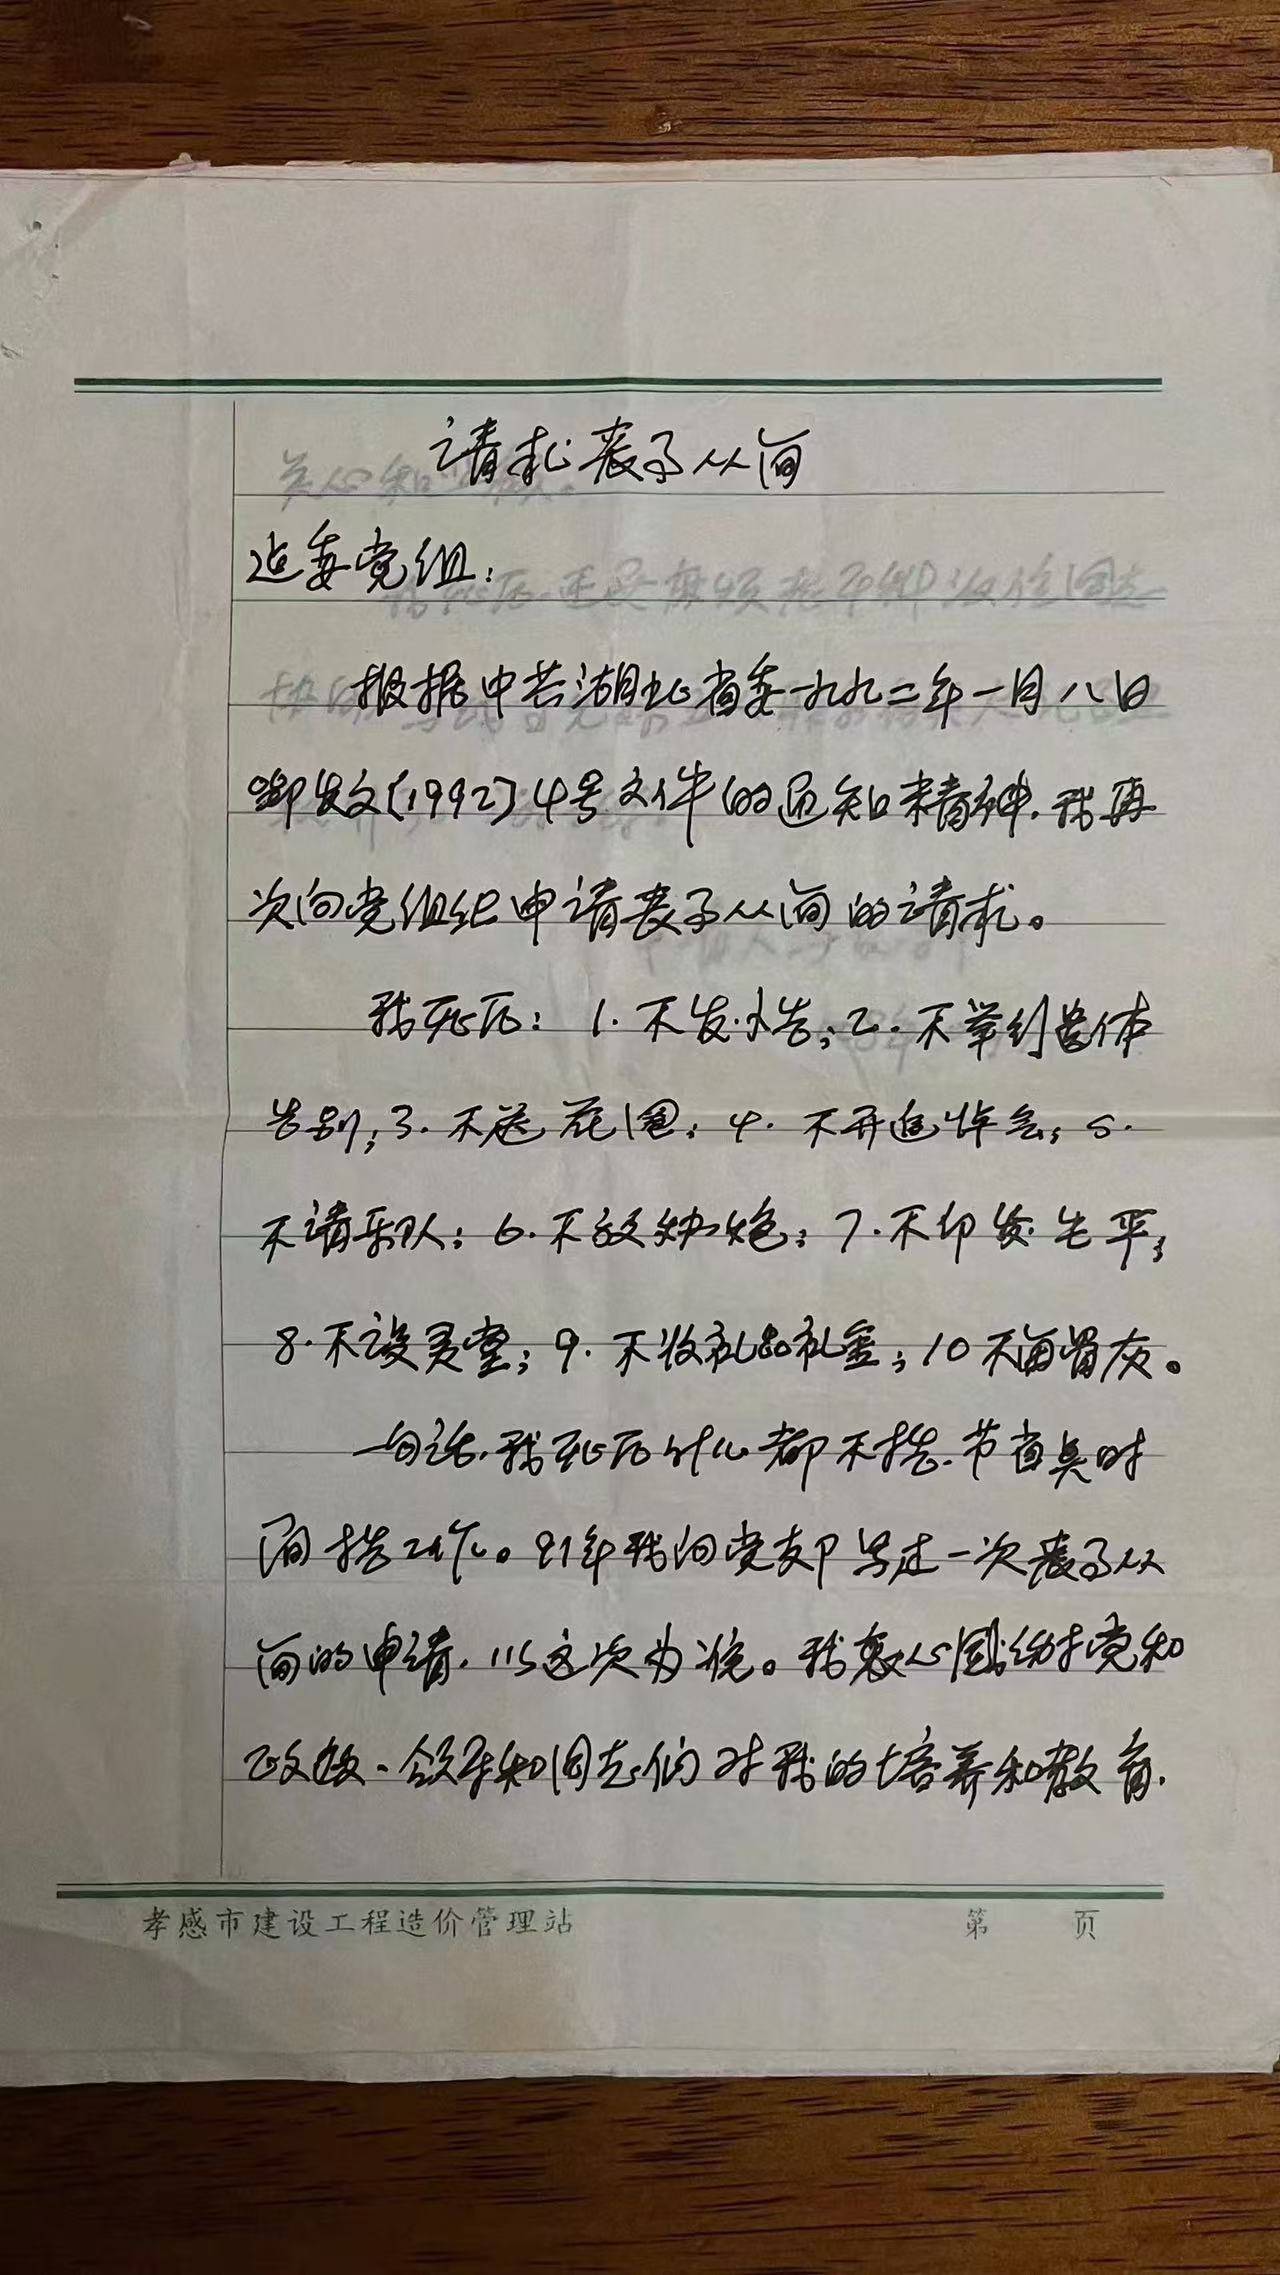 请求丧事从简
建委党组：
根据中共湖北省委一九九二年一月八日
鄂发文〔1992〕4号文件的通知精神，我再
次向党组织申请丧事从简的请求。
我死后：1.不发讣告；2.不举行遗体
告别；3.不送花圈；4.不开追悼会；5.
不请乐队；6.不放鞭炮；7.不印发生平；
8.不设灵堂；9.不收礼品礼金；10不留骨灰。
一句话，我死后什么都不搞，节省其时
间搞工作。91年我向党支部写过一次丧事从
简的申请，以这次为准。我衷心感谢党和
政府、领导和同志们对我的培养和教育，
孝感市建设工程造价管理站
第 页